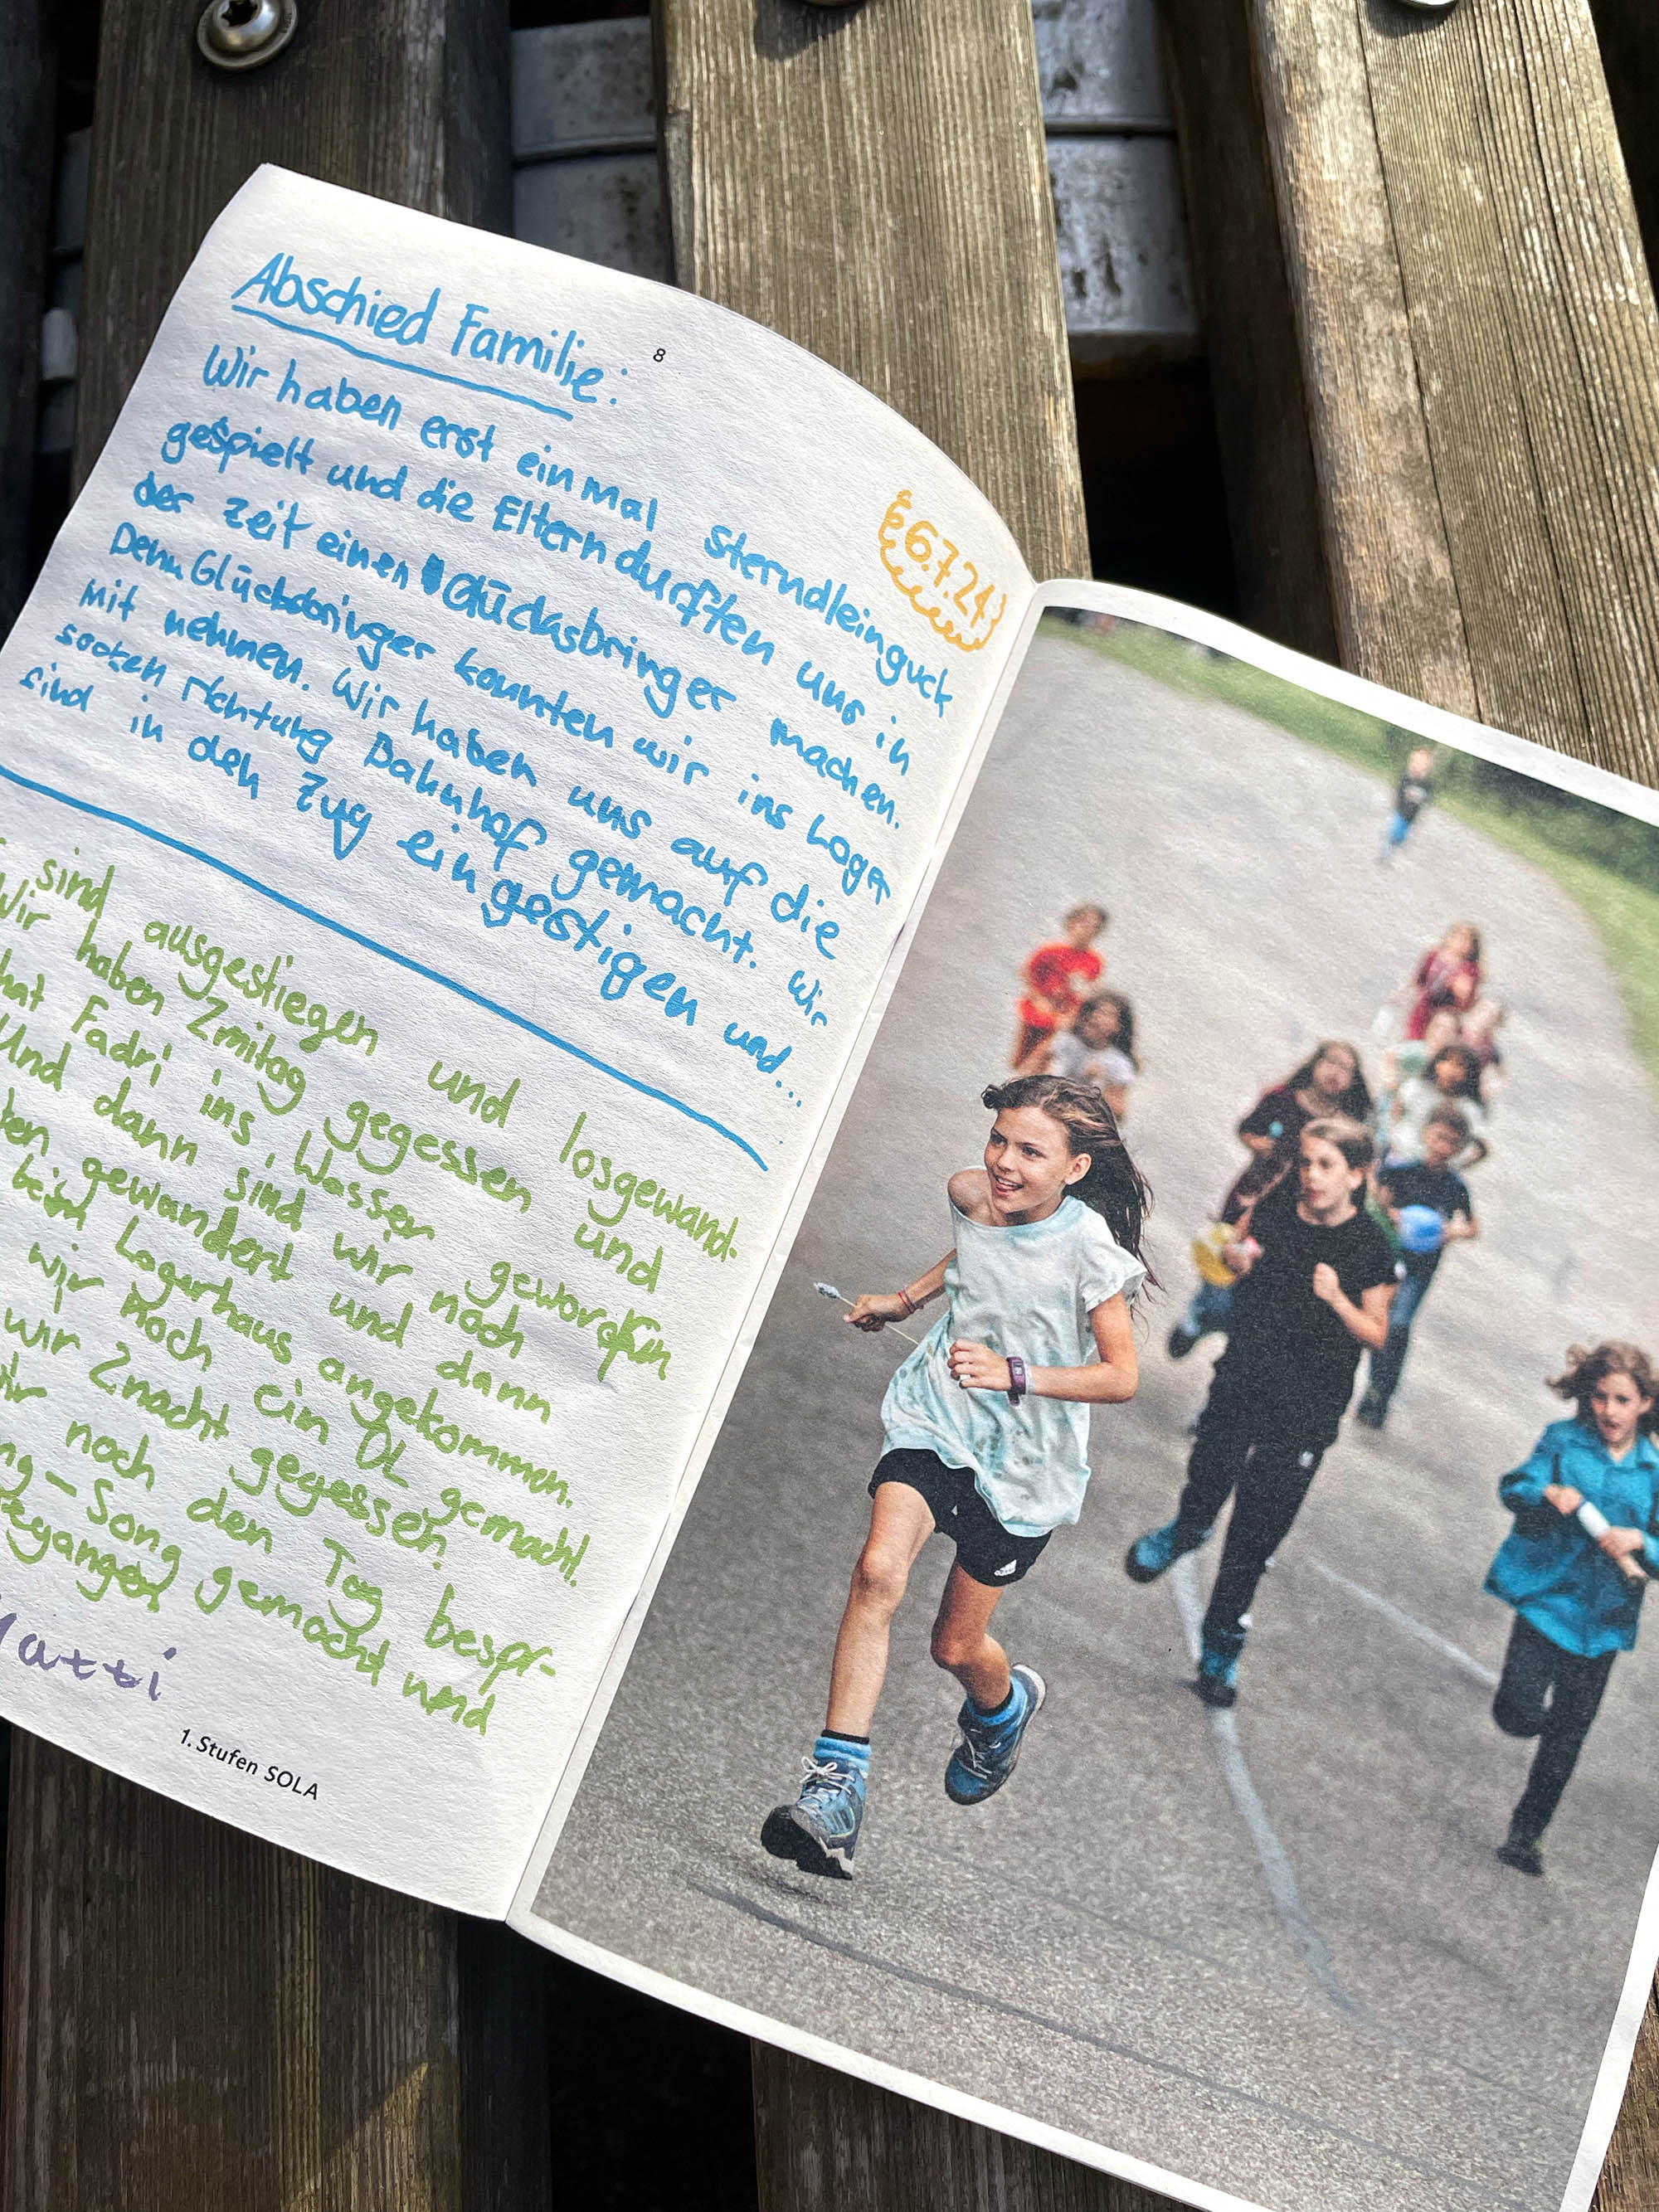 8
Abschied Familie:
6.7.24
Wir haben erst einmal Sterndleinguck
gespielt und die Eltern durften uns in
der zeit einen Glücksbringer machen.
Denn Glücksbringer konnten wir ins Lager
mit nehmen. Wir haben uns auf die
socken richtung Bahnhof gemacht. Wir
sind in den Zug eingestigen und...
sind ausgestiegen und losgewand-
Wir haben Zmitag gegessen und
hat Fadri ins Wasser geworfen
Und dann sind wir noch
gewandert und dann
beim Lagerhaus angekommen.
wir noch ein OL gemacht.
wir Znacht gegessen.
noch den Tag bespr-
-Song gemacht und
gegangen
Matti
1. Stufen SOLA